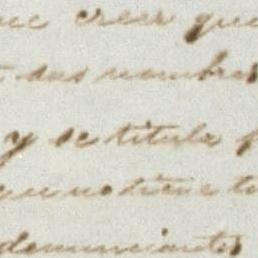 creer que
sus nombres
y se titula
no tiene
denunciantes